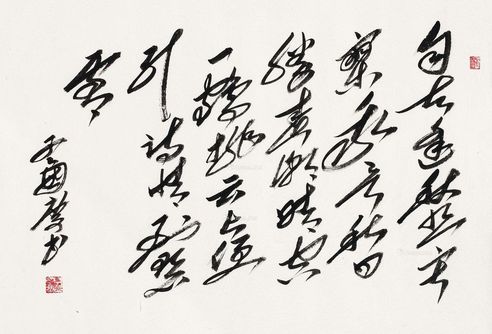 自古逢秋悲寂
寥我言秋日
胜春潮晴空
一鹤排云上便
引诗情到碧
霄
国摩书